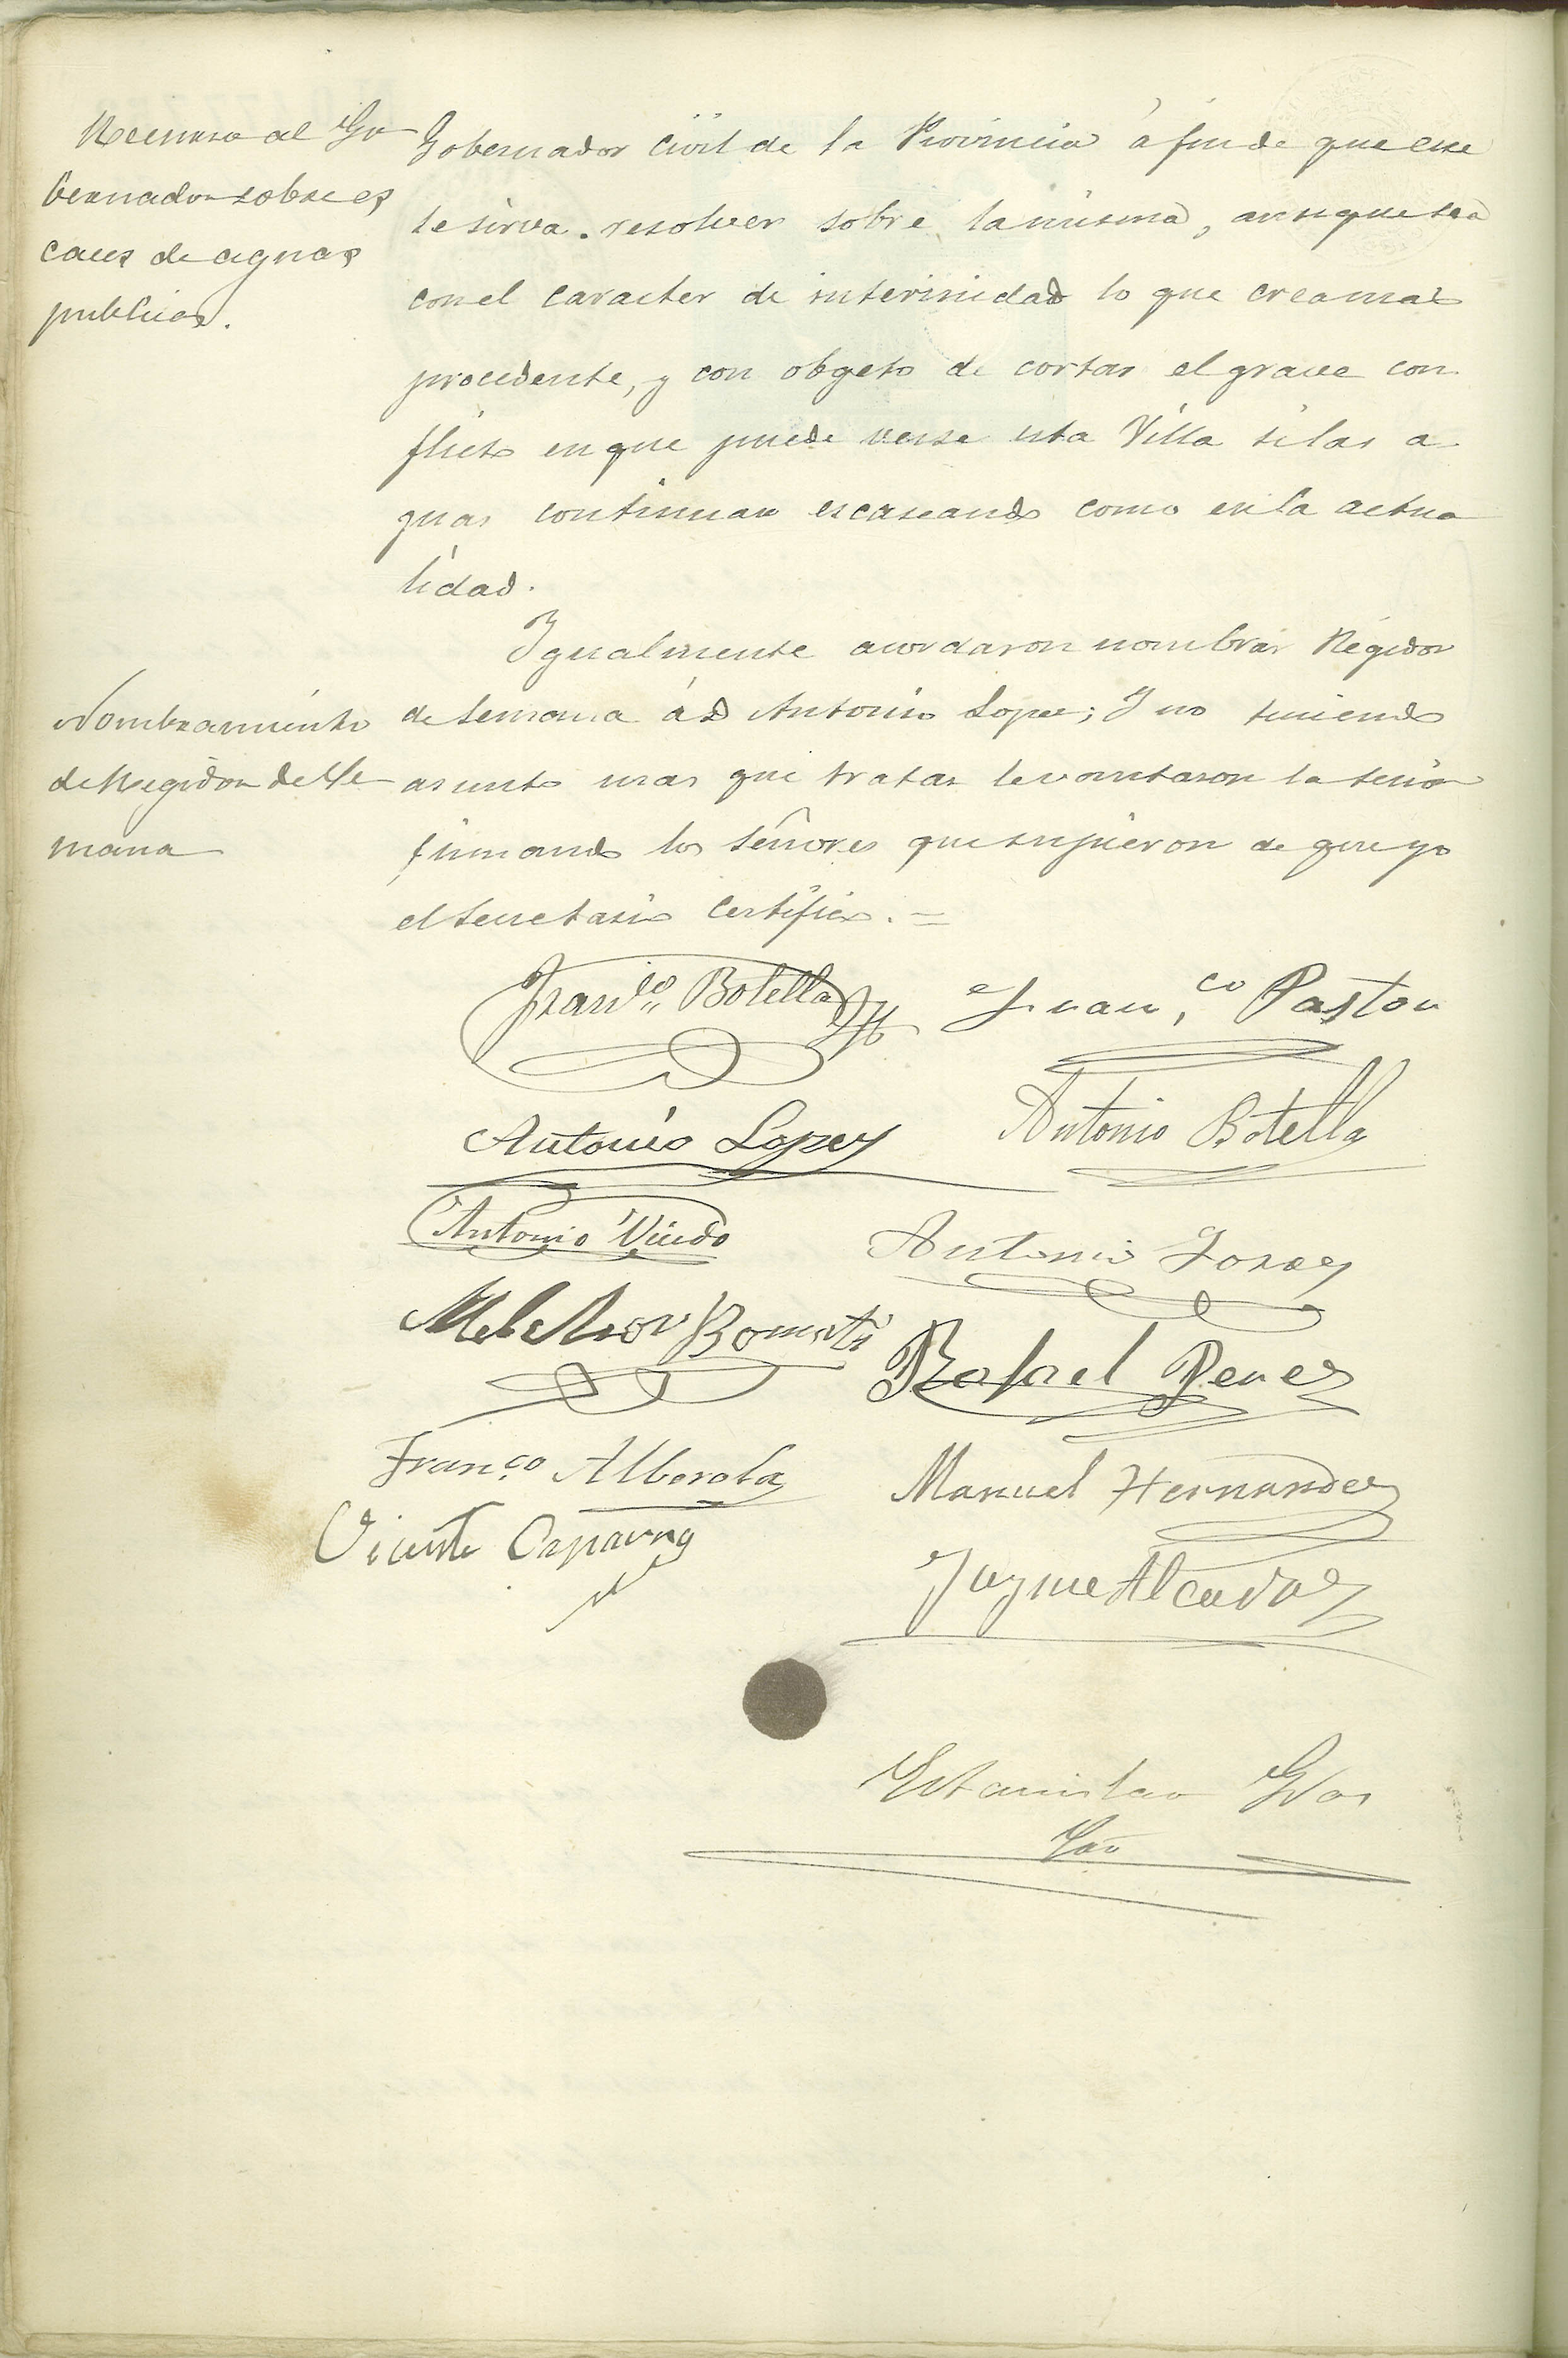 Recurso al Go
bernador sobre es
cases de aguas
publicas.
Gobernador Civil de la Provincia á fin de que ese
se sirva resolver sobre la misma, aunque sea
con el caracter de interinidad lo que crea mas
procedente, y con obgeto de cortar el grave con
flicto en que puede verse esta Villa si las a
guas continuan escaseando como en la actua
lidad.
Nombramiento
de Regidor de Se
mana
Igualmente acordaron nombrar Regidor
de Semana á D Antonio Lopez; Y no teniendo
asunto mas que tratar levantaron la sesion
firmando los Señores que supieron de que yo
el Secretario Certifico. =
Franco Botella
Franco Pastor
Antonio Lopez
Antonio Botella
Antonio
Antonio
Melchor Bomati
Rafael Perez
Franco Alberola
Manuel Hernandez
Vicente
Jayme Alcaraz
Estanislao